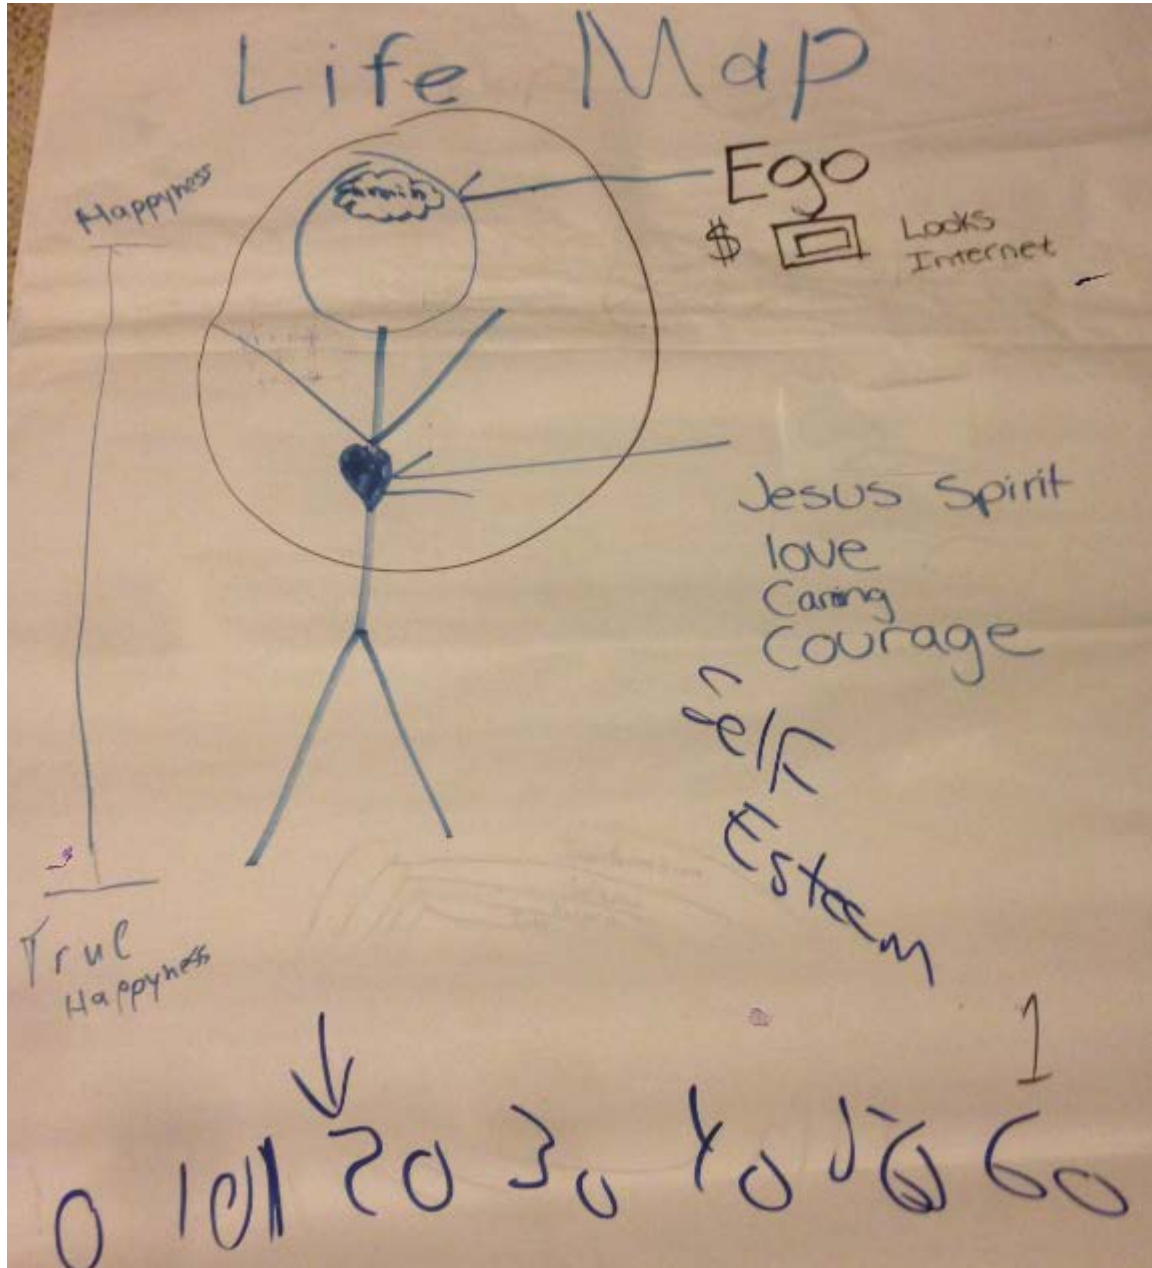 Life Map
Happyness
Ego
$
Looks
Internet
Jesus Spirit
love
Caring
Courage
Self
Esteem
True
Happyness
1
0 10 20 30 40 50 60